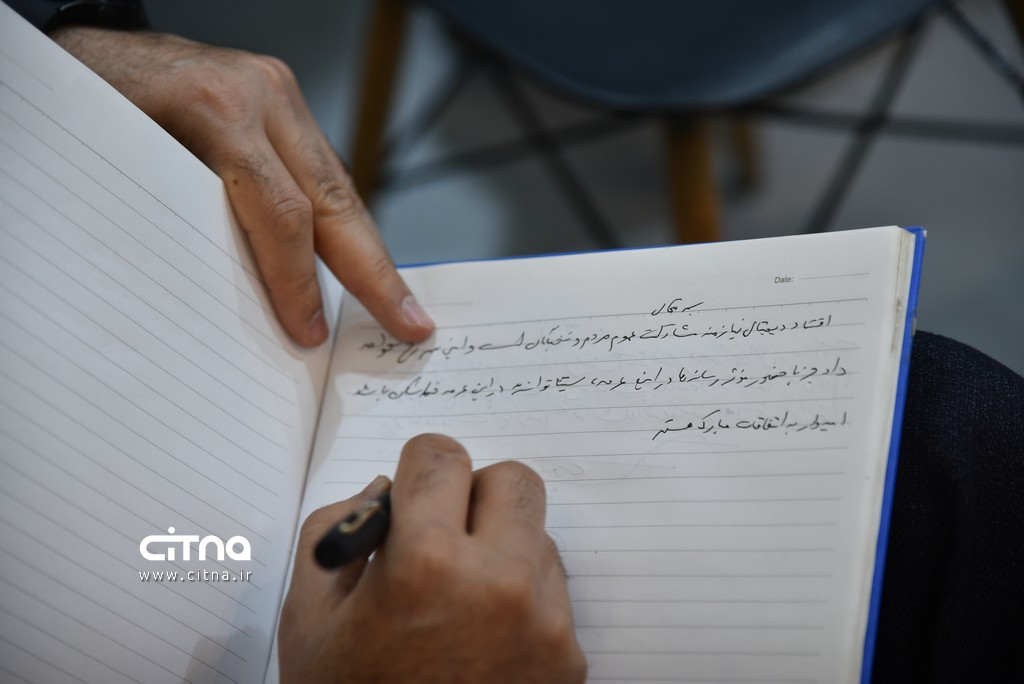 Date:
اقتصاد دیجیتال نیازمند مشارکت عموم مردم و نخبگان است و این مهم رخ نخواهد
داد جز با حضور موثر رسانه‌ها در این عرصه، سیتنا توانسته در این عرصه باشد
امیدوار به اتفاقات مبارک هستیم
CITNA
www.citna.ir